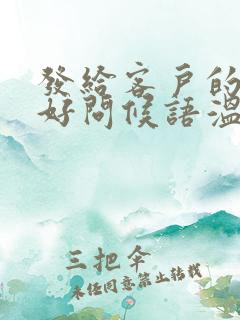 發給客戶的
好問候語溫
三把傘
未經同意禁止轉載